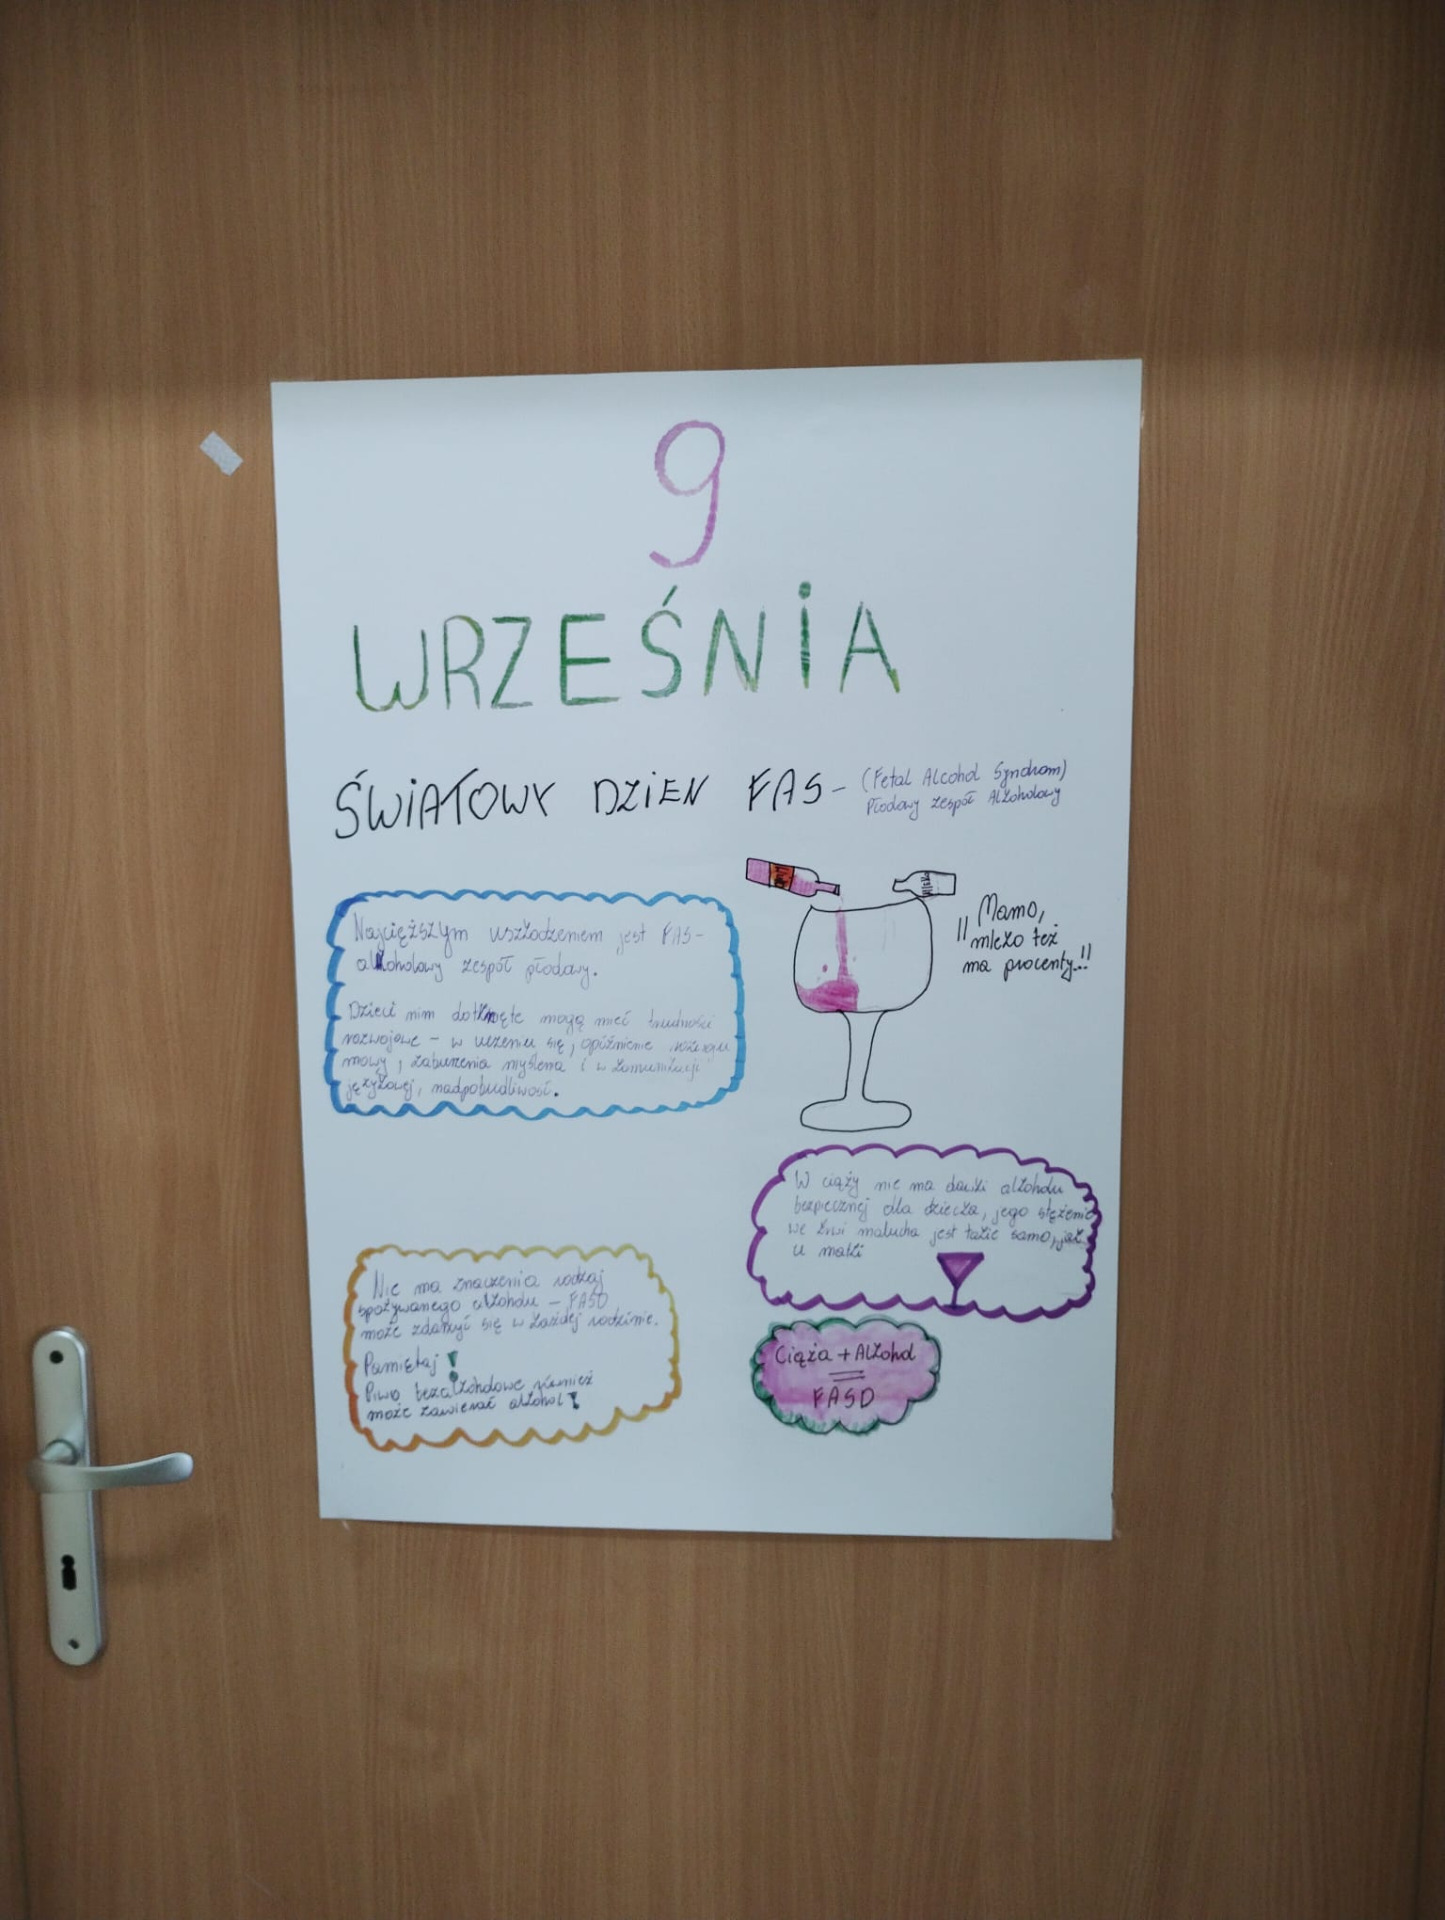 9
WRZEŚNIA
ŚWIATOWY DZIEN FAS - (Fetal Alcohol Syndrom)
Płodowy zespół Alkoholowy
Najcięższym uszkodzeniem jest FAS-
alkoholowy zespół płodowy.
Dzieci nim dotknięte mogą mieć trudności
rozwojowe - w uczeniu się, opóźnienie rozwoju
mowy, zaburzenia myślenia i w komunikacji
językowej, nadpobudliwość.
"Mamo,
mleko też
ma procenty..."
W ciąży nie ma dawki alkoholu
bezpiecznej dla dziecka, jego stężenie
we krwi malucha jest takie samo, jak
u matki
Nie ma znaczenia rodzaj
spożywanego alkoholu - FASD
może zdarzyć się w każdej rodzinie.
Pamiętaj!
Piwo bezalkoholowe również
może zawierać alkohol!
Ciąża + Alkohol
=
FASD